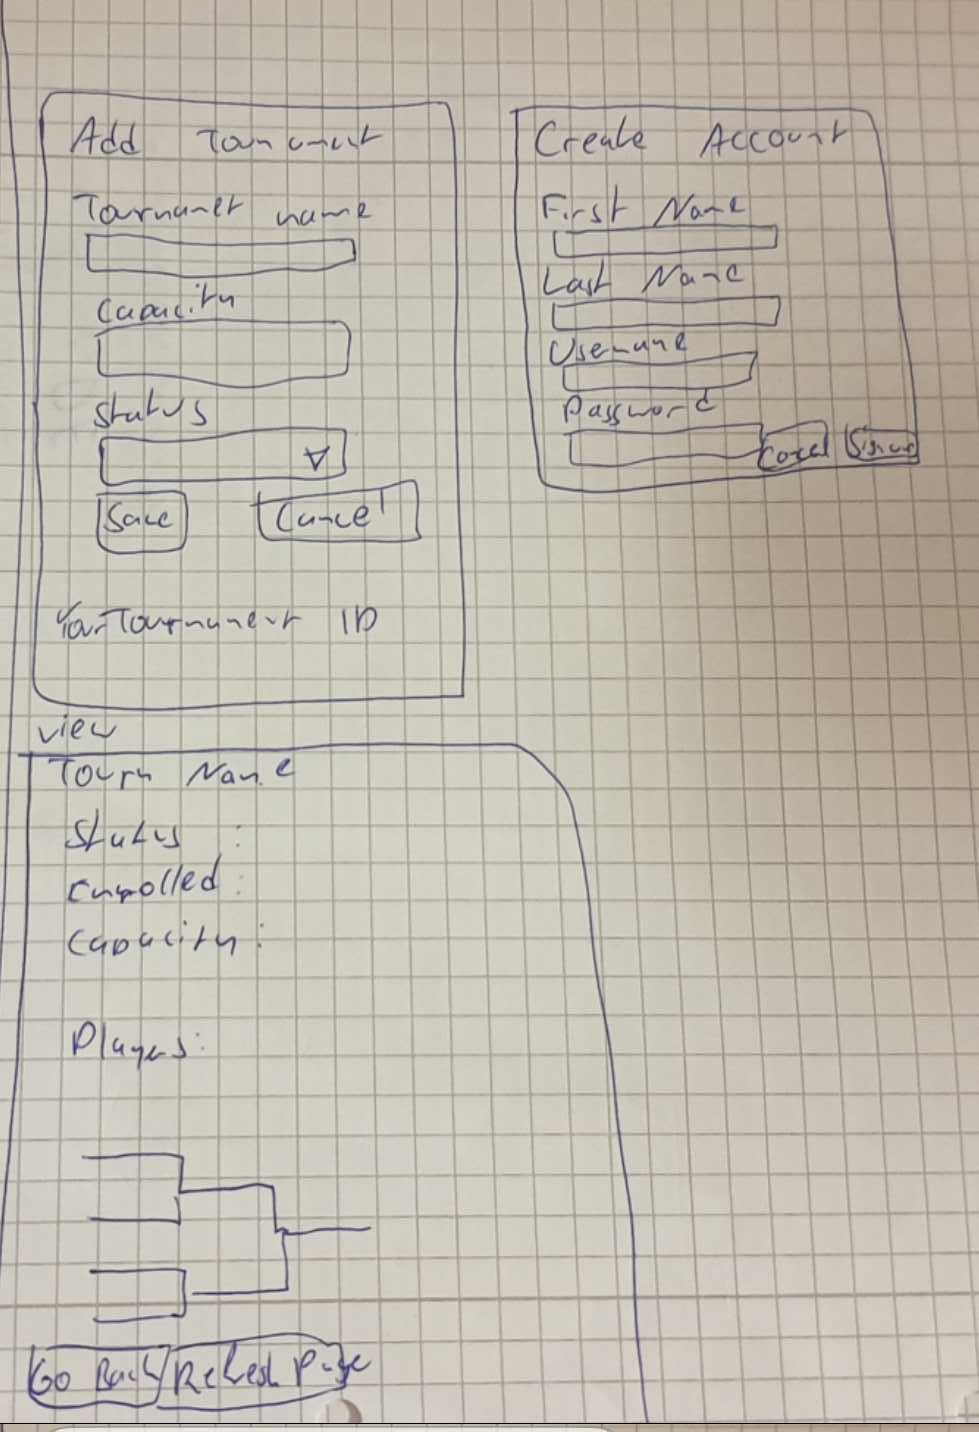 Add Tournament
Tournamet name
Capacity
Status
Save Cancel
Your Tournament ID
Create Account
First Name
Last Name
Username
Password
Cancel Signup
view
Tourn Name
Status :
Enrolled :
Capacity :
Players :
Go Back Refresh Page